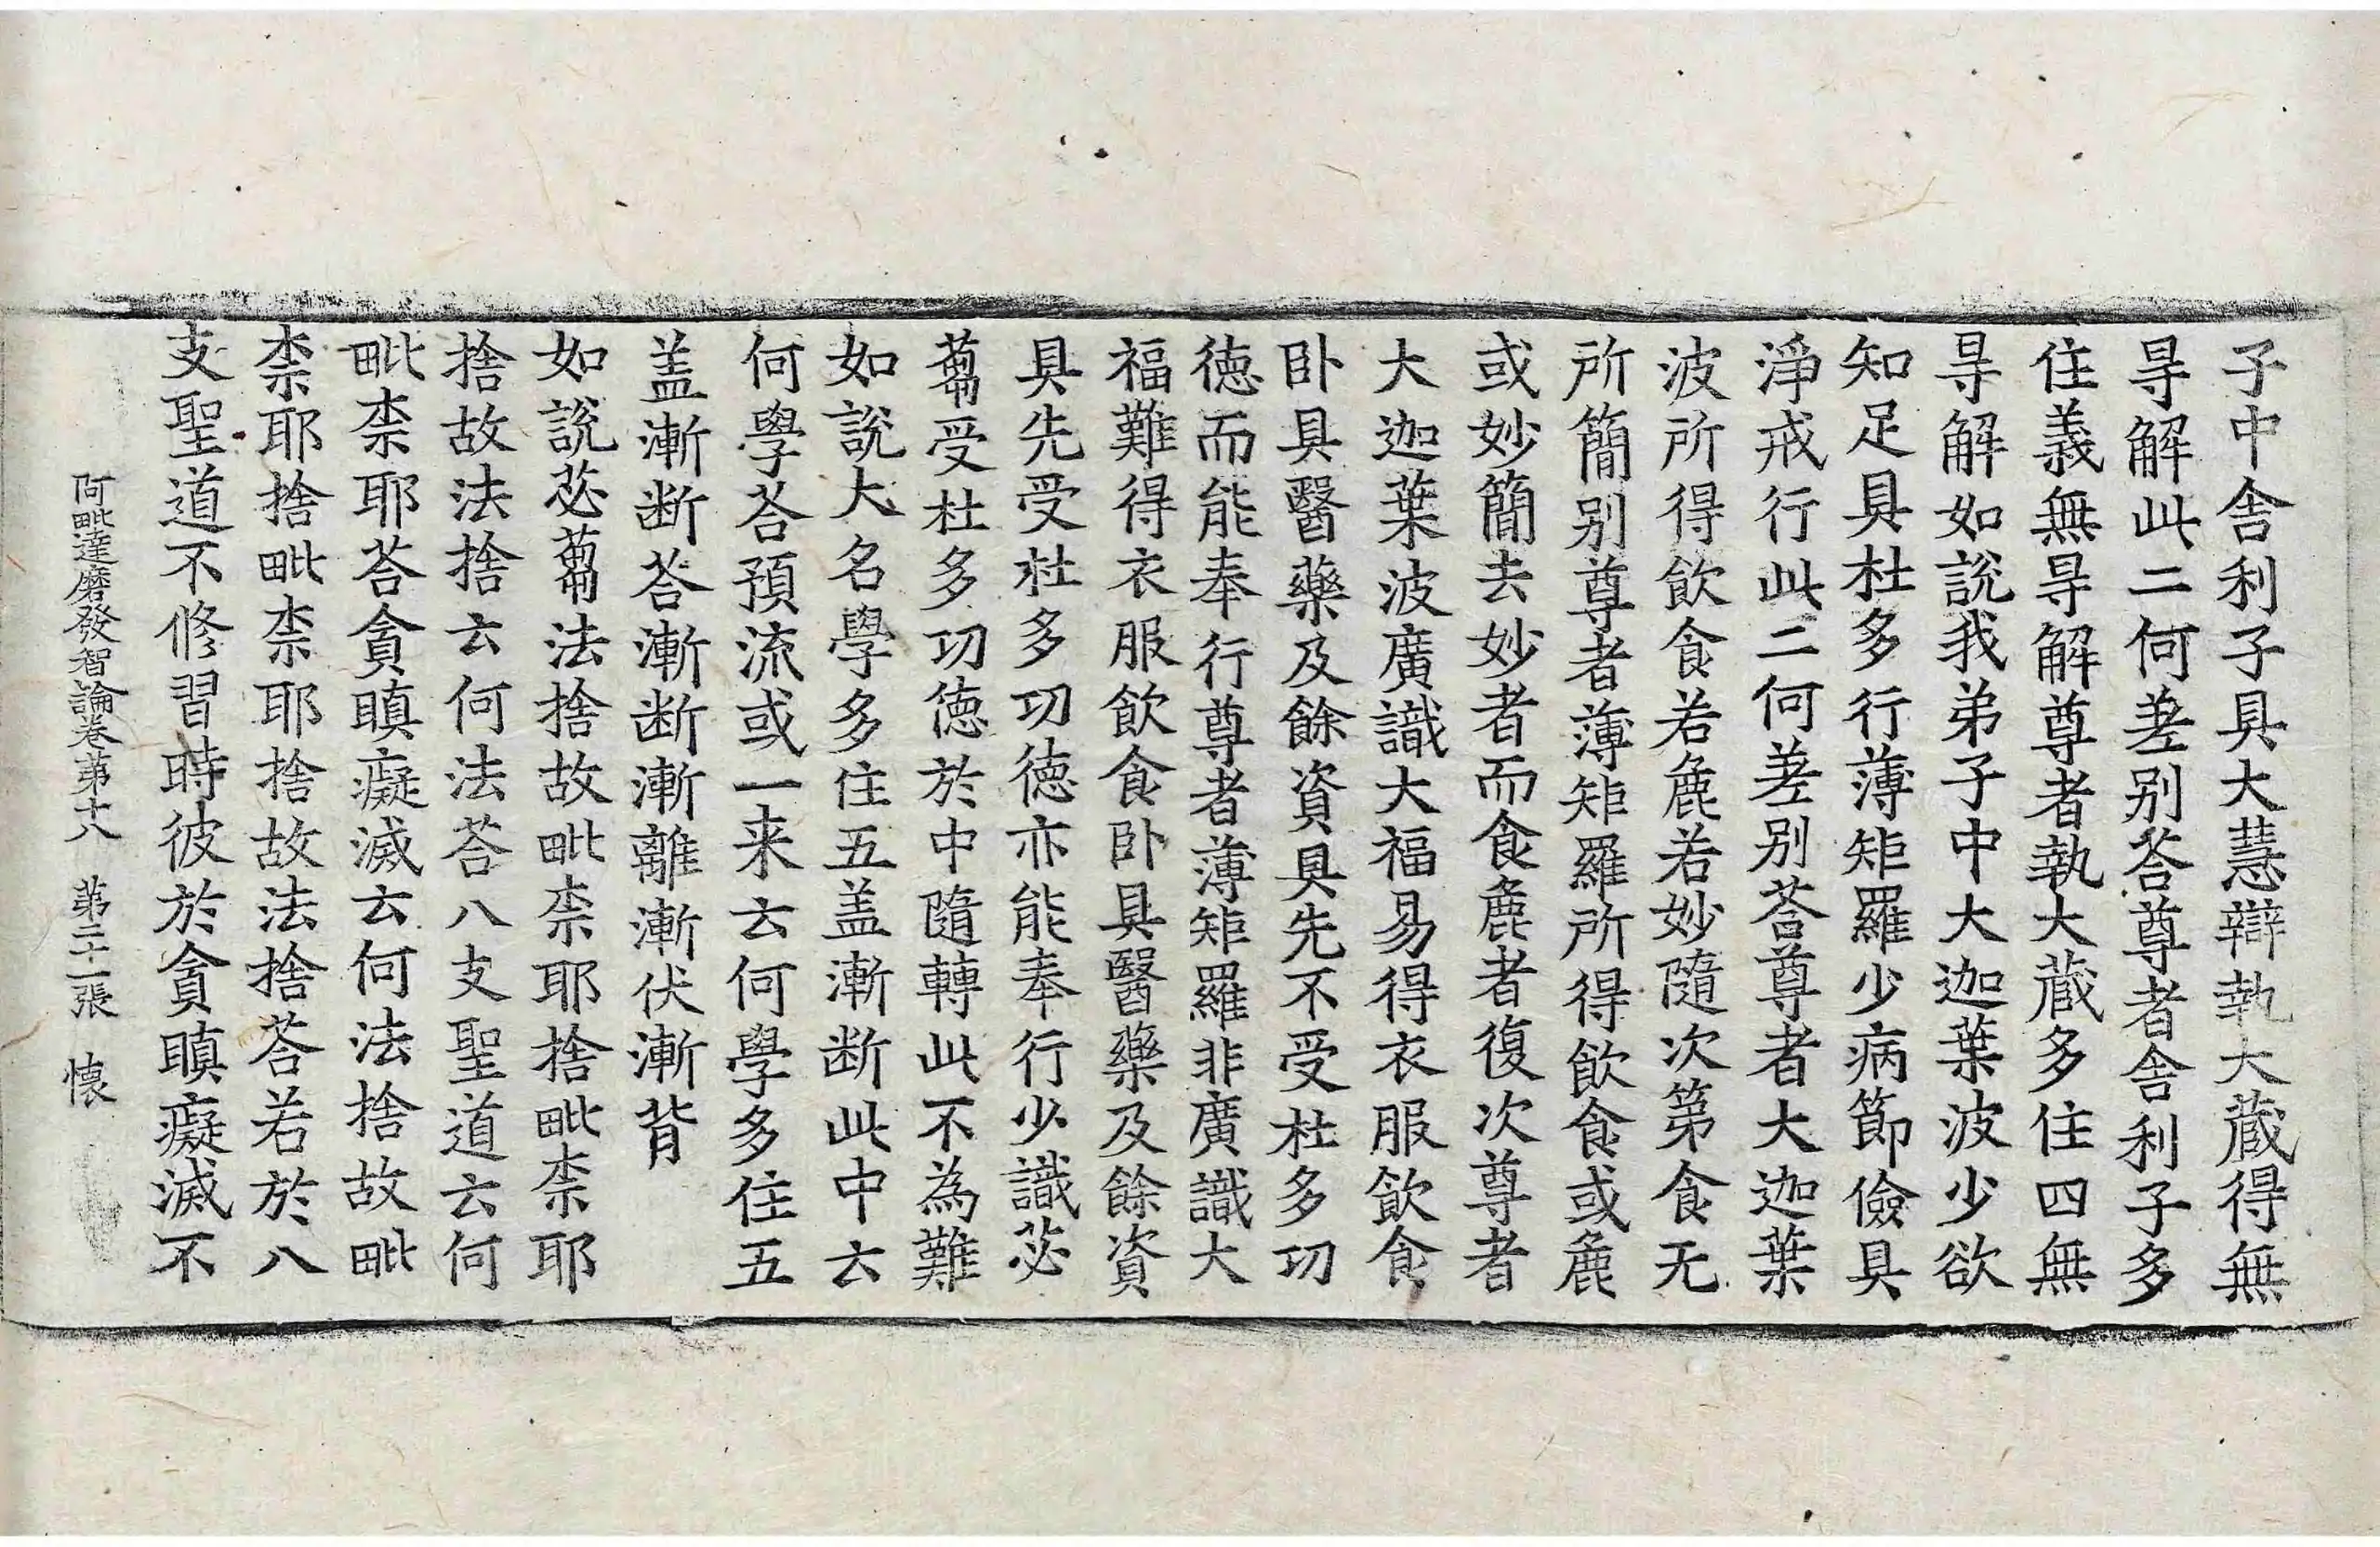 子中舍利子具大慧辯執大蔵得無
㝵解此二何差别荅尊者舍利子多
住義無㝵解尊者執大蔵多住四無
㝵解如說我弟子中大迦葉波少欲
知足具杜多行薄矩羅少病節儉具
淨戒行此二何差别荅尊者大迦葉
波所得飲食若麁若妙隨次第食无
所簡别尊者薄矩羅所得飲食或麁
或妙簡去妙者而食麁者復次尊者
大迦葉波廣識大福易得衣服飲食
卧具醫藥及餘資具先不受杜多功
德而能奉行尊者薄矩羅非廣識大
福難得衣服飲食卧具醫藥及餘資
具先受杜多功德亦能奉行少識苾
蒭受杜多功德於中隨轉此不為難
如說大名學多住五盖漸断此中云
何學荅預流或一来云何學多住五
盖漸断荅漸断漸離漸伏漸背
如說苾蒭法捨故毗柰耶捨毗柰耶
捨故法捨云何法荅八支聖道云何
毗柰耶荅貪瞋癡滅云何法捨故毗
柰耶捨毗柰耶捨故法捨荅若於八
支聖道不修習時彼於貪瞋癡滅不
阿毗達磨發智論卷第十八 第二十一張 懐